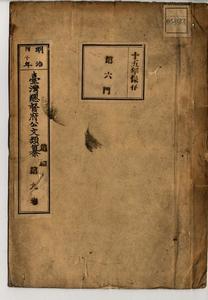 十五年保存
第六門
明治
四十年
臺灣總督府公文類纂
追加
第九卷